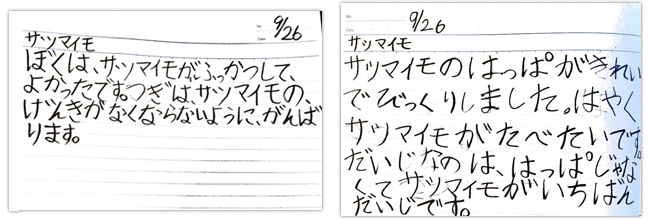 No.
Date
9/26
サツマイモ
ぼくは、サツマイモがふっかつして、
よかったです。つぎは、サツマイモの、
げんきがなくならないように、がんば
ります。
No.
Date
9/26
サツマイモ
サツマイモのはっぱがきれい
でびっくりしました。はやく
サツマイモがたべたいです。
だいじなのは、はっぱじゃな
くてサツマイモがいちばん
だいじです。